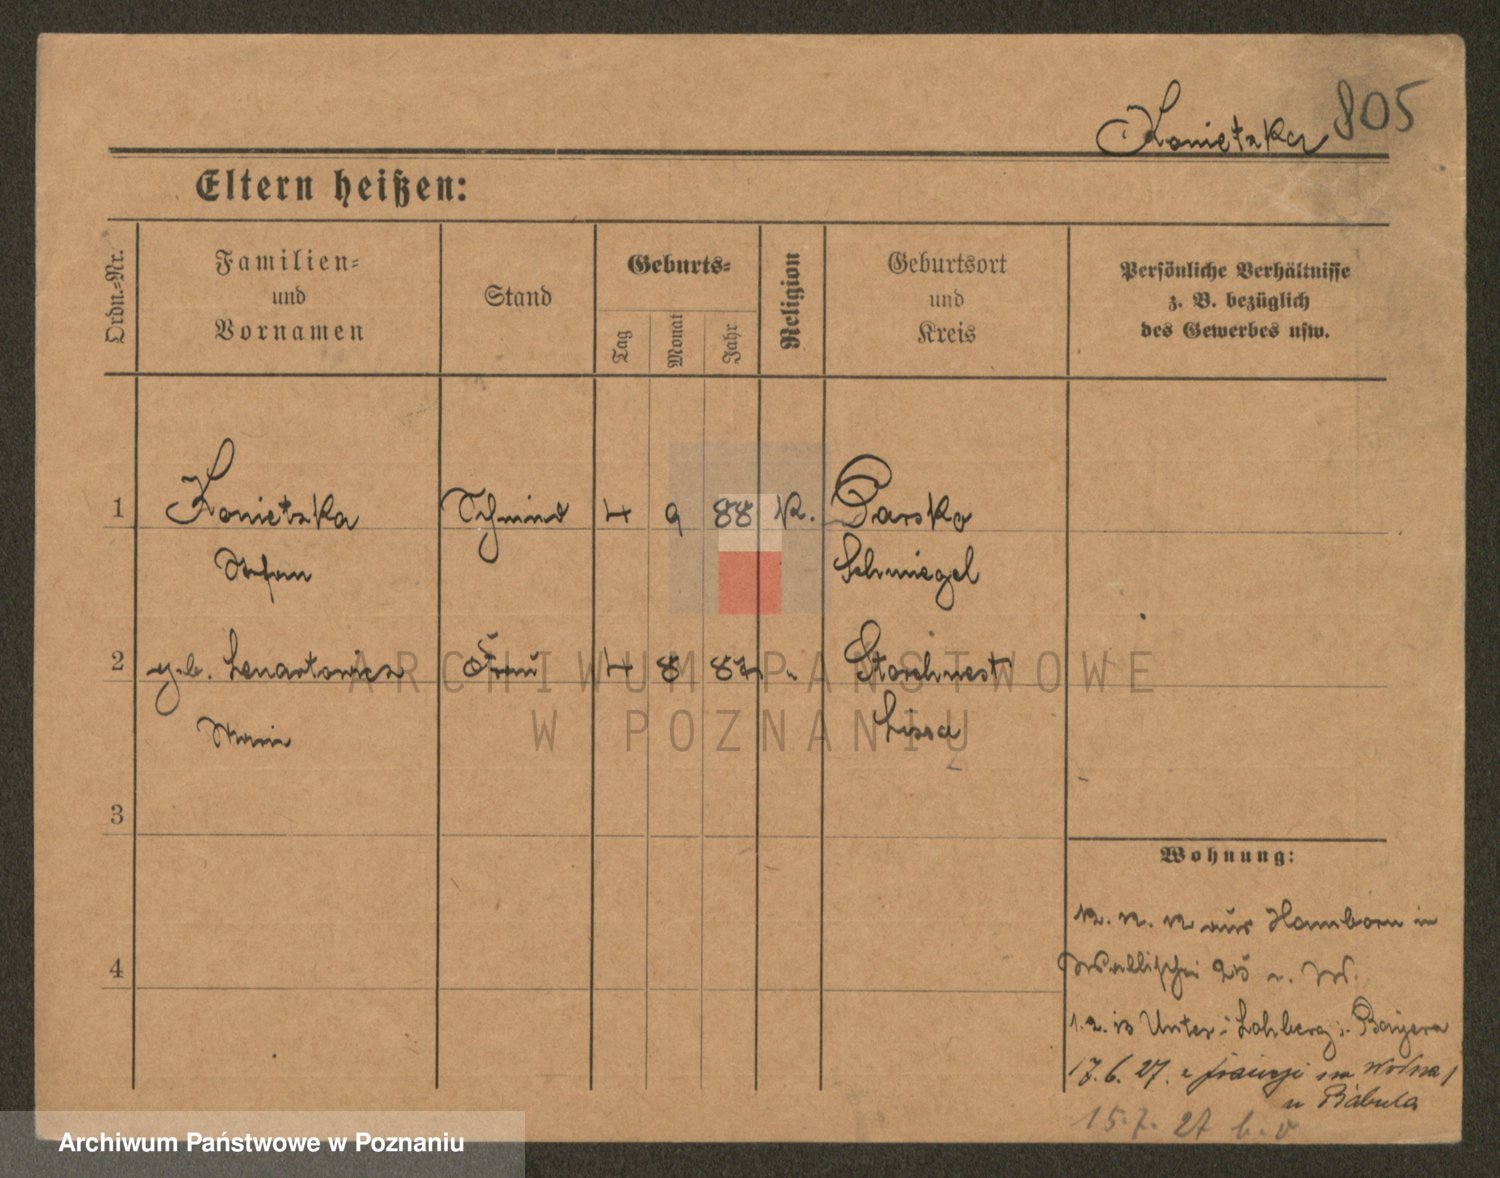 Konietzka 805
Eltern heißen:
Ordn.-Nr.
Familien-
und
Vornamen
Stand
Geburts-
Tag
Monat
Jahr
Religion
Geburtsort
und
Kreis
Persönliche Verhältnisse
z. B. bezüglich
des Gewerbes usw.
1 Konietzka Schmied 4 9 88 K. Parsko
Stefan Schmiegel
2 geb. Lenartowicz Frau 4 8 87 " Storchnest
Marie Lissa
3
Wohnung:
aus Hamborn in
Wallischei 25
4
Unter Lohberg i. Bayern
17.6.27. z Francji na Wolna
u Babula
15.7.27
ARCHIWUM PAŃSTWOWE
W POZNANIU
Archiwum Państwowe w Poznaniu